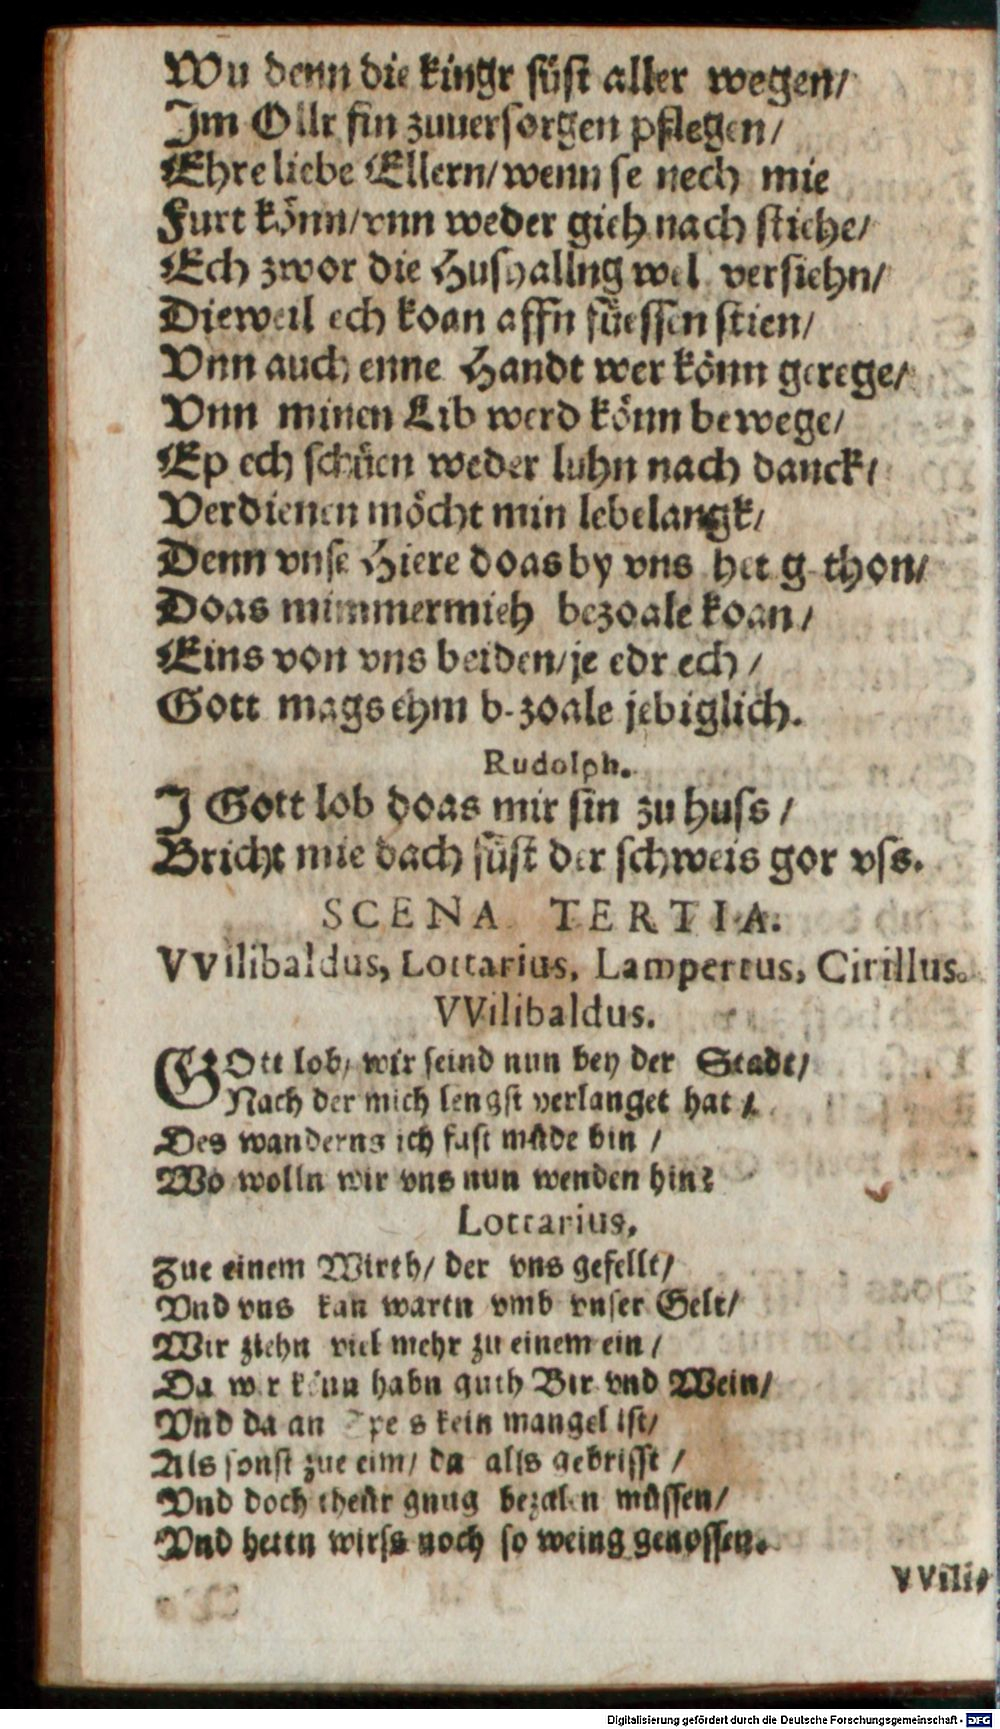 Wu denn die kingr süst aller wegen/
Im Ollr sin zuuersorgen pflegen/
Ehre liebe Ellern/wenn se nech mie
Furt könn/vnn weder gieh nach stiehe/
Ech zwor die Hushallng wel versiehn/
Dieweil ech koan affn füessen stien/
Vnn auch enne Handt wer könn gerege/
Vnn minen Lib werd könn bewege/
Ep ech schüen weder luhn nach danck/
Verdienen möcht min lebelangk/
Denn vnse Hiere doas by vns het g thon/
Doas mimmermieh bezoale koan/
Eins von vns beiden/je edr ech/
Gott mags ehm b-zoale jebiglich.
Rudolph.
I Gott lob doas mir sin zu huss/
Bricht mie dach süst der schweis gor vss.
SCENA TERTIA.
VVilibaldus, Lottarius, Lampertus, Cirillus.
VVilibaldus.
GOtt lob/ wir seind nun bey der Stadt/
Nach der mich lengst verlanget hat/
Des wanderns ich fast müde bin/
Wo wolln wir vns nun wenden hin?
Lottarius.
Zue einem Wirth/ der vns gefellt/
Vnd vns kan wartn vmb vnser Gelt/
Wir ziehn viel mehr zu einem ein/
Da w r könn habn guth Bir vnd Wein/
Vnd da an Spe s kein mangel ist/
Als sonst zue eim/ da alls gebrisst/
Vnd doch theür gnug bezalen müssen/
Vnd hettn wirss noch so weing genossen.
VVili-
Digitalisierung gefördert durch die Deutsche Forschungsgemeinschaft - DFG